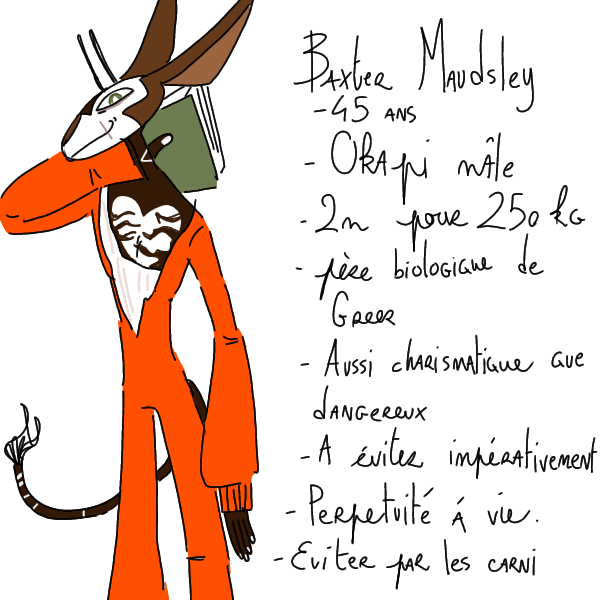 Baxter Maudsley
- 45 ans
- Okapi mâle
- 2m pour 250 kG
- père biologique de
Greer
- Aussi charismatique que
dangereux
- A éviter impérativement
- Perpetuité á vie.
- Eviter par les carni